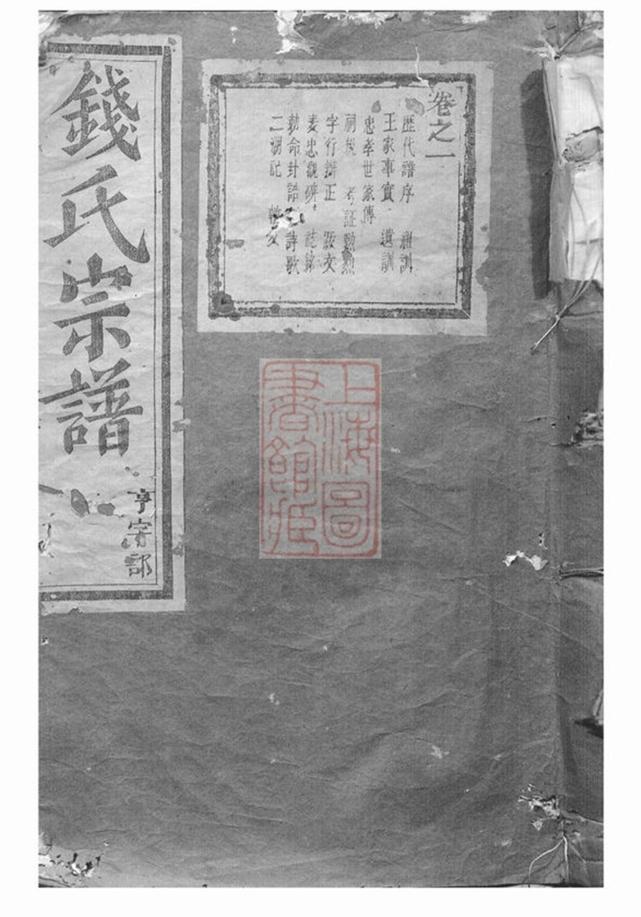 卷之一
歷代譜序 雜訓
王家事實 遺訓
忠孝世家傳
祠規 考証勳烈
字行辯正 跋文
表忠觀碑 誌銘
勅命封誥 詩歌
二湖記
錢氏宗譜
亨字部
上海圖
書館藏